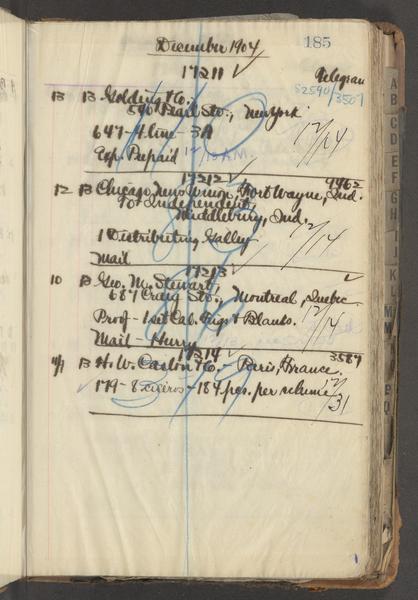 December 1904 185
17211 ✓
Telegram
82590/3507
13 B Golding & Co.
540 Pearl St., New York
647 - 4 line - 3A 12/14
Exp. Prepaid 12/10 A.M.
17212 ✓ 9962
12 B Chicago News Union, Fort Wayne, Ind.
For Independent,
Middlebury, Ind.
1 Distributing Galley 12/14
Mail
17213 ✓
10 B Geo. M. Stewart,
687 Craig St., Montreal, Quebec
Proof - 1 set Cal. Figs & Blanks. 12/14
Mail - Hurry
17214 ✓ 3587
B H. W. Caslon & Co. - Paris, France.
179 - 8 ciceros - 184 pcs. per volume 12/31
A
B
C
D
E
F
G
H
J
K
L
M